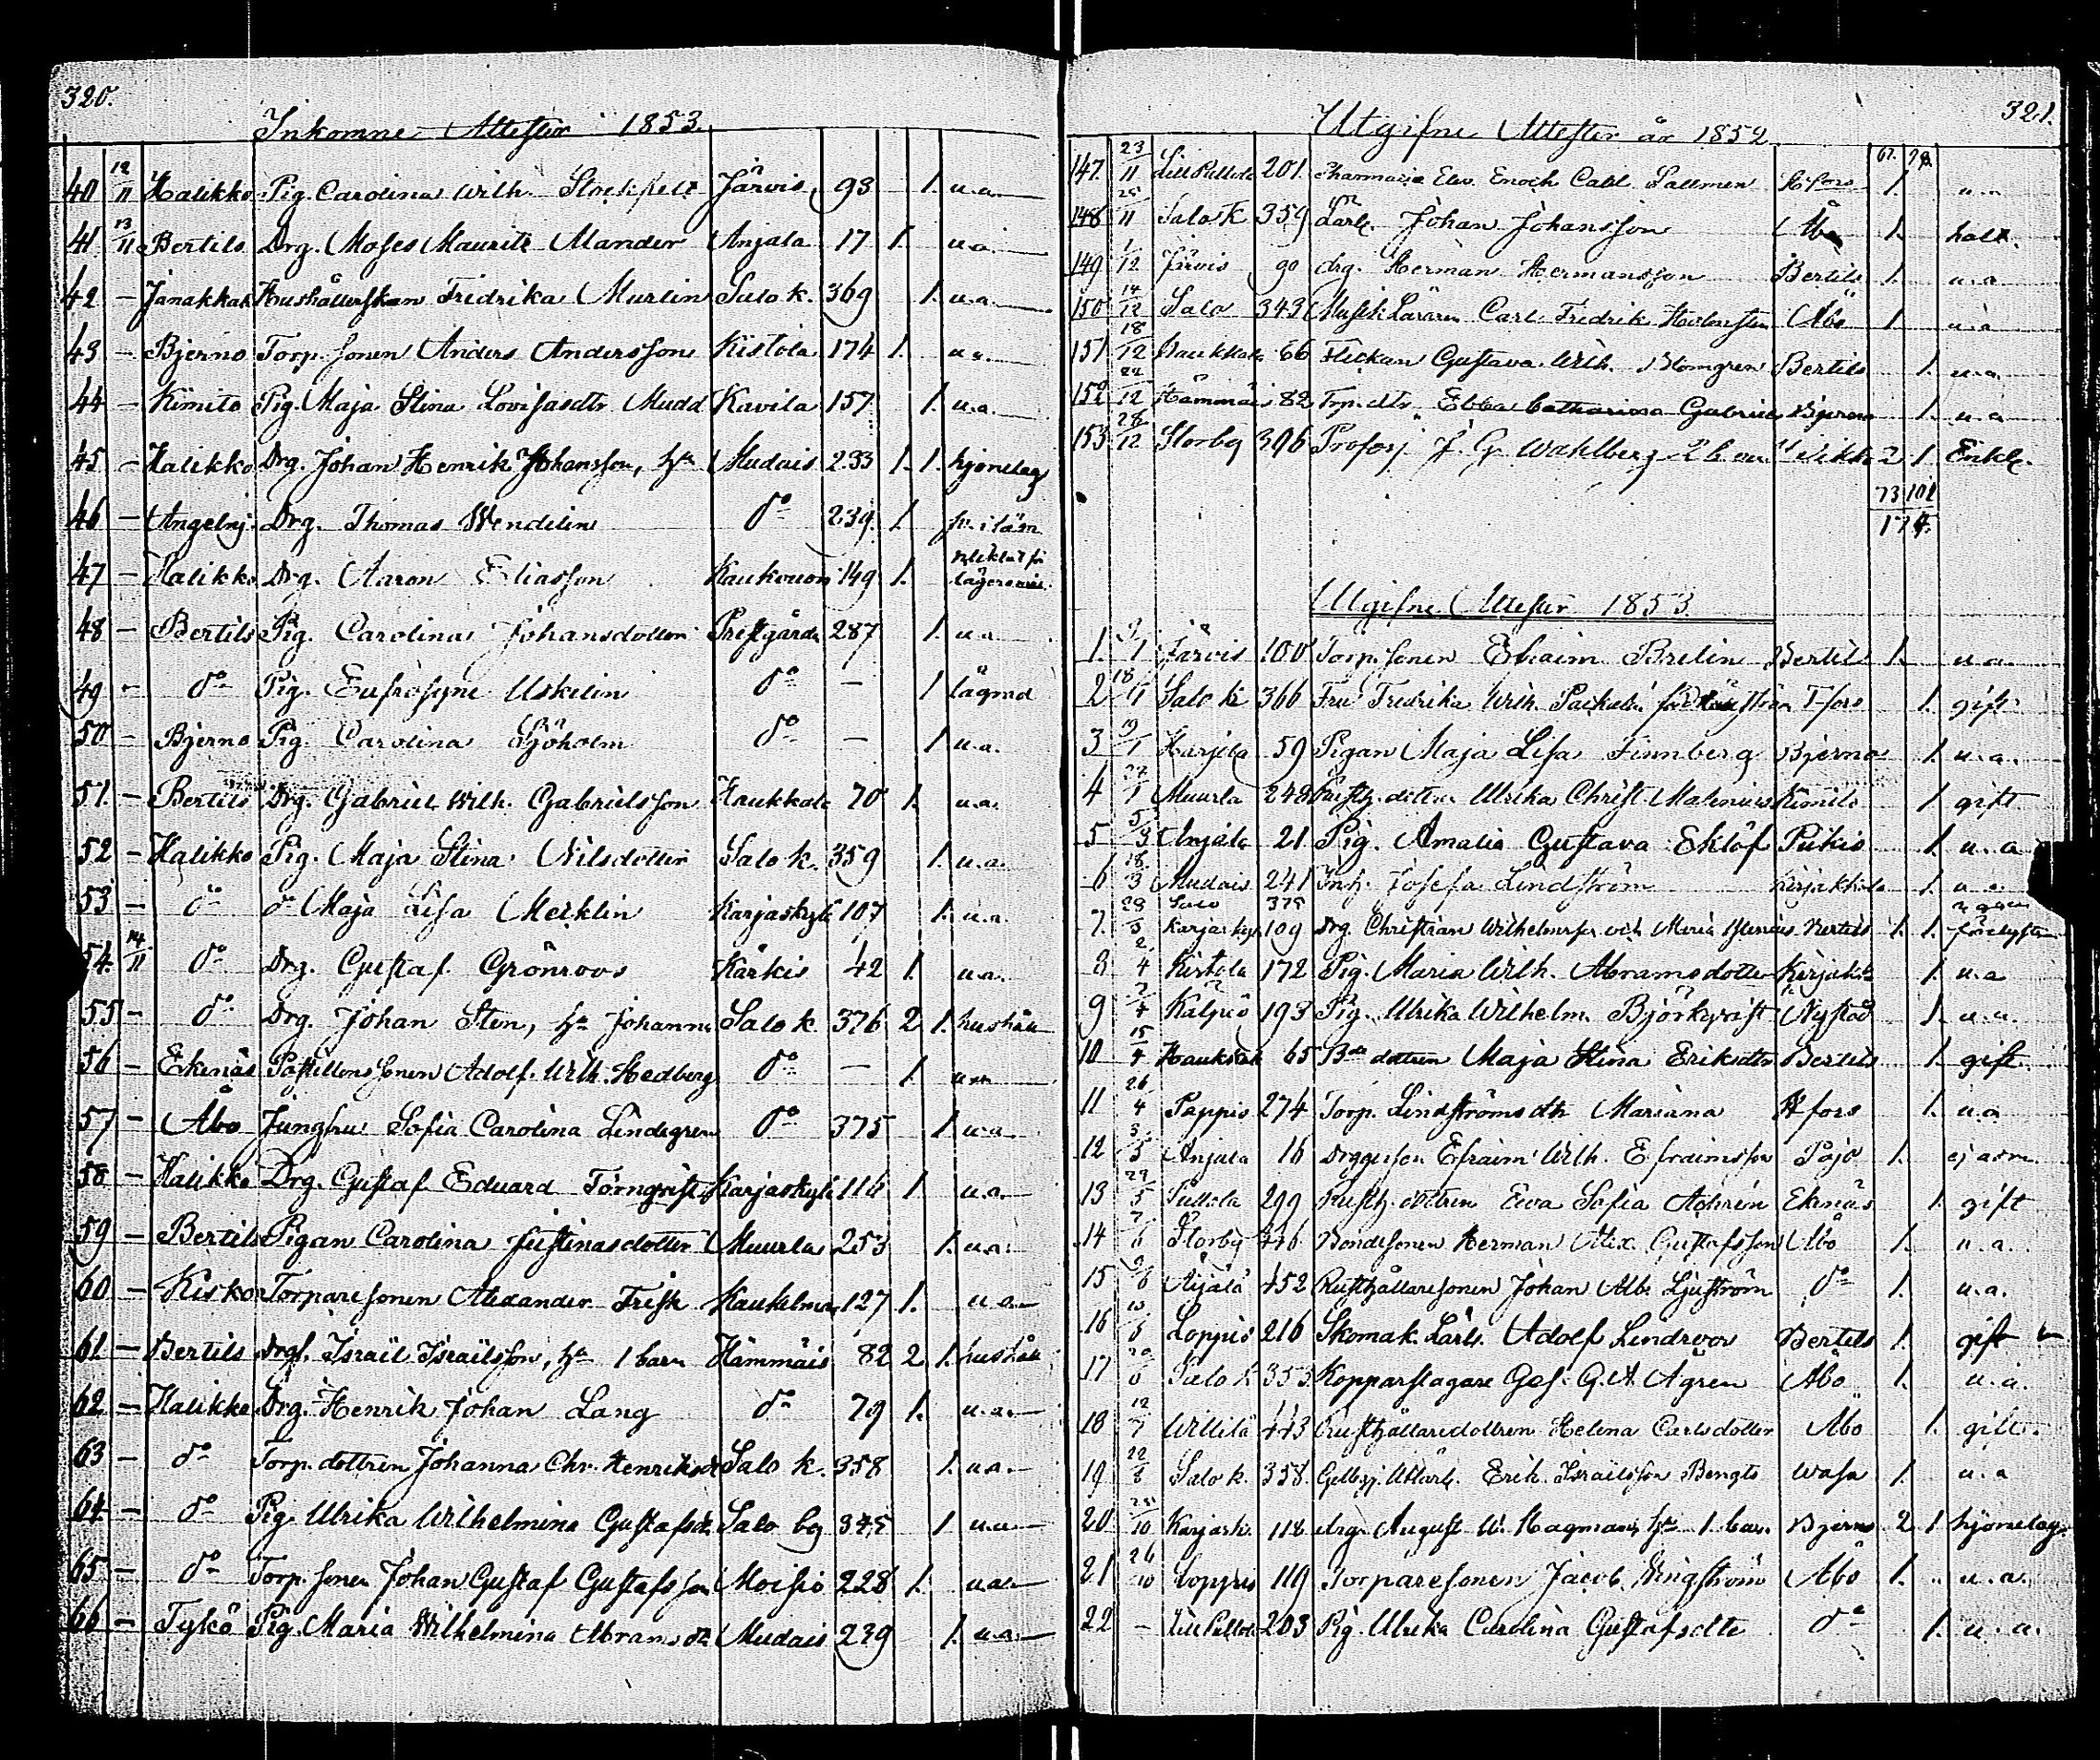 320.
Inkomne Attester 1853.
40 12/11 Halikko Pig. Carolina Wilh. Järvis 93 1. u.a.
41 13/11 Bertils Drg. Moses Maurits Mander Anjala 17 1. u.a.
42 – Janakkala Hushållerskan Fredrika Murlin Salo k. 369 1. u.a.
43 – Bjerno Torp. sonen Anders Andersson Kistola 174 1. u.a.
44 – Kimito Pig. Maja Stina Lovisasdtr Mudd Kavila 157 1. u.a.
45 – Halikko Drg. Johan Henrik Johansson, hu Mudais 233 1. 1. hjonelag
46 – Angelnj. Drg. Thomas Wendelin do 239. 1.
47 – Halikko Drg. Aaron Eliasson 149 1.
48 – Bertils Pig. Carolina Johansdotter Prestgårde 287 1. u.a.
49 – do Pig. Eufrosyne Uskelin do – 1 lägrad
50 – Bjerno Pig. Carolina Sjöholm do – 1 u.a.
51. – Bertils Drg. Gabriel Wilh. Gabrielsson Haukkala 70 1. u.a.
52 – Halikko Pig. Maja Stina Nilsdotter Salo k. 359 1. u.a.
53 – do do Maja Lisa Mecklin Karjaskylä 107 1. u.a.
54. 14/11 do Drg. Gustaf Grönroos Kärkis 42 1. u.a.
55 – do Drg. Johan Sten, hu Johanna Salo k. 376 2 1. hushåll
56 – Ekenäs Postillons sonen Adolf Wilh. Hedberg do – 1. u.a.
57 – Åbo Jungfru Sofia Carolina Lindegren do 375 1 u.a.
58 – Halikko Drg. Gustaf Eduard Törnqvist Karjaskylä 116 1 u.a.
59 – Bertils Pigan Carolina Justinasdotter Muurla 253 1. u.a.
60 – Kisko Torparesonen Alexander Frisk 127 1. u.a.
61 – Bertils Drg. Israil Israilsson, hu 1 barn Hämmäis 82 2 1. hushåll
62 – Halikko Drg. Henrik Johan Lang do 79 1. u.a.
63 – do Torp. dottren Johanna Chr. Henriksdr Salo k. 358 1. u.a.
64 – do Pig. Ulrika Wilhelmina Gustafsdr. Salo by 345 1 u.a.
65 – do Torp. sonen Johan Gustaf Gustafsson Moisio 228 1. u.a.
66 – Tykö Pig. Maria Wilhelmina Abramsdr Mudais 239 1. u.a.
321.
Utgifne Attester år 1852
147. 23/11 Lill Pullola 201. Pharmacie Elev. Enoch Sallmen Hfors 1. u.a.
148 25/11 Salo k 359 Lärl. Johan Johansson Åbo 1. halt.
149 1/12 Järvis 90 drg. Herman Hermansson Bertils 1. u.a
150 14/12 Salo 343 Musik Läraren Carl Fredrik Åbo 1 u.a
151 18/12 Haukkala 66 Flickan Gustava Wilh. Blomgren Bertils 1. u.a.
152 22/12 Hämmäis 82 Torp. dtr Ebba Catharina Gabriels Bjerno 1. u.a
153 28/12 Storby 396 Profosj. J. G. Wahlberg 2 b. 2 1 Enkl.
73 101
174.
Utgifne Attester 1853.
1. Järvis 100 Torp. sonen Efraim Brelin Bertils 1. u.a.
2 18/1 Salo k 366 Fru Fredrika Wilh. T-fors 1. gift
3 19/1 Karjela 59 Pigan Maja Lisa Finnberg Bjerno 1 u.a.
4 Muurla 248 Rusth. dottren Ulrika Christ. Malenius Kimito 1 gift
5 5/3 Anjala 21 Pig. Amalia Gustava Eklöf Piikis 1. u.a
6 18/3 Mudais 241 Inh. Josefa Lindström 1. u.a.
7. 29/3 Salo 375 Karjaskyl 109 Drg. Christian Wilhelmsson och Maria Bertils 1. 1.
8 2/4 Kistola 172 Pig. Maria Wilh. Abramsdotter 1. u.a
9 Kälpiö 193 Pig. Ulrika Wilhelm. Björkqvist Nystad 1. u.a.
10 15/4 Haukkala 65 Bde dottren Maja Stina Eriksdtr Bertils 1. gift
11 26/4 Pappis 274 Torp. Lindströms dtr Mariana Hfors 1. u.a
12 3/5 Anjala 16 Efraim Wilh. Efraimsson Pojo 1.
13 29/5 Pullola 299 Rusth. dottren Eva Sofia Ekenäs 1 gift
14 7/6 Storby Bondesonen Herman Alex. Gustafsson Åbo 1. u.a.
15 Anjala 452 Rusthållaresonen Johan Alb. Ljuström do 1. u.a.
16 Loppis 216 Skomak. Lärl. Adolf Lindroos Bertils 1. gift
17 Salo k 353 Kopparslagare Ges. G. A. Ågren Åbo 1. u.a.
18 12/7 Willilä 443 Rusthållaredottren Helena Carlsdotter Åbo 1. gift
19 Salo k. 358. Erik Israilsson Bengts Wasa 1. u.a
20 Karjask. 118 drg. August W. Hagman, hu 1 barn Bjerno 2 1 hjonelag.
21 26/10 Loppis 119 Torparesonen Jacob Wingström Åbo 1. u.a.
22 – Lill Pullola 203 Pig. Ulrika Carolina Gustafsdtr do 1. u.a.